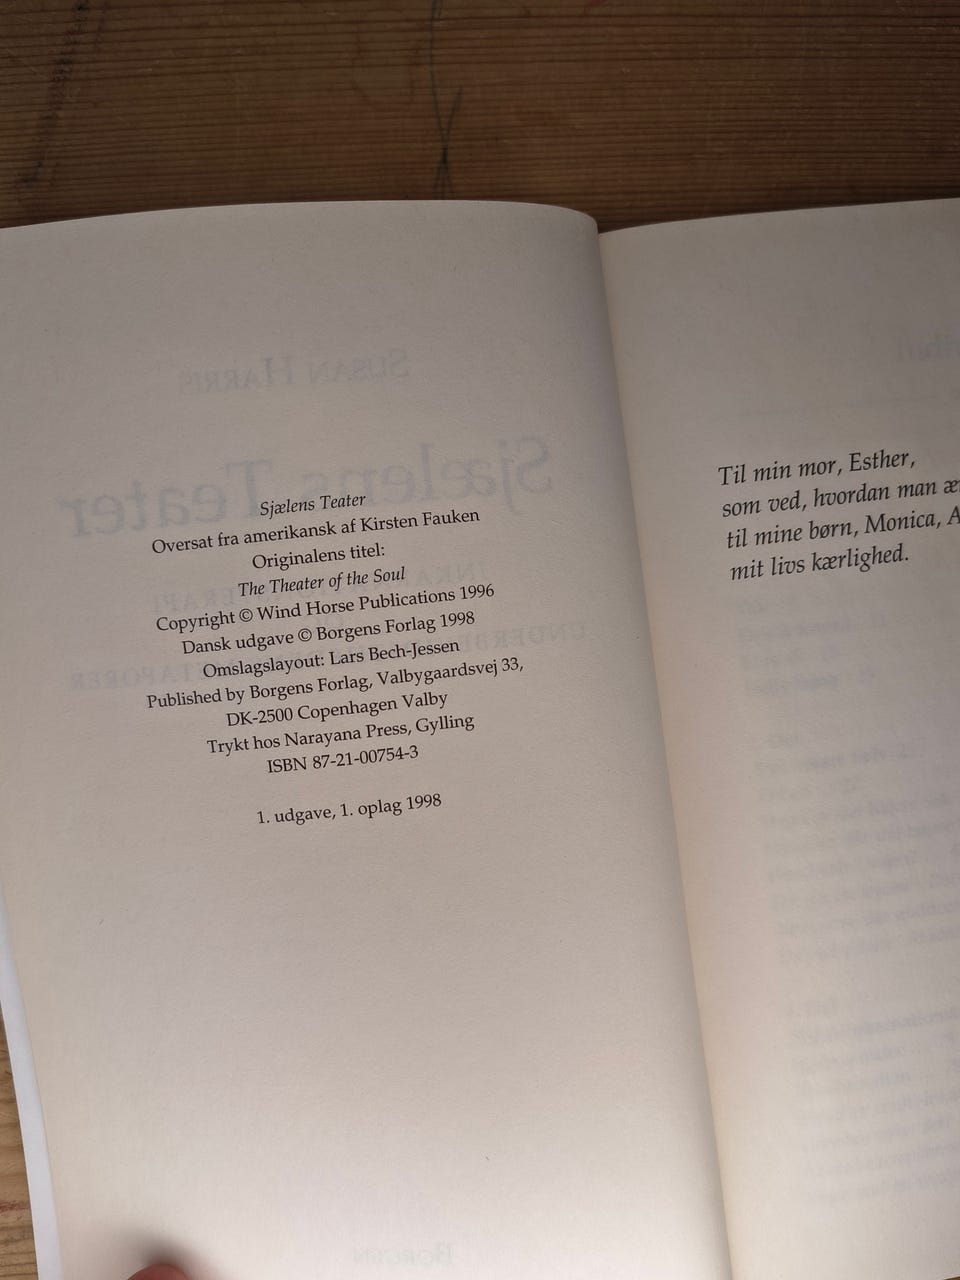 Sjælens Teater
Oversat fra amerikansk af Kirsten Fauken
Originalens titel:
The Theater of the Soul
Copyright © Wind Horse Publications 1996
Dansk udgave © Borgens Forlag 1998
Omslagslayout: Lars Bech-Jessen
Published by Borgens Forlag, Valbygaardsvej 33,
DK-2500 Copenhagen Valby
Trykt hos Narayana Press, Gylling
ISBN 87-21-00754-3
1. udgave, 1. oplag 1998
SUSAN HARRIS
Sjælens Teater
BORGEN
Til min mor, Esther,
som ved, hvordan man
til mine børn, Monica,
mit livs kærlighed.